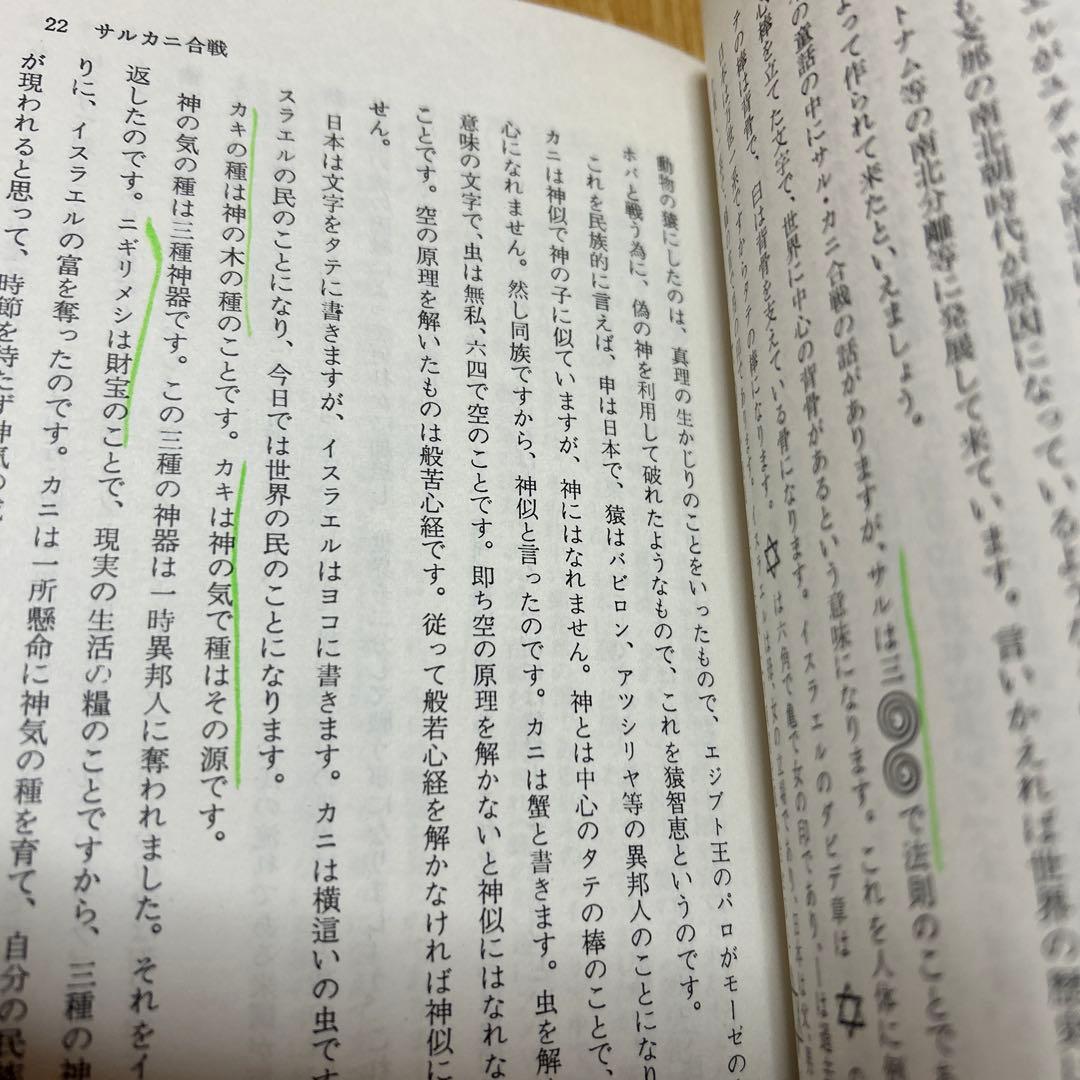 22 サルカニ合戦
エルがユダヤと
もと那の南北朝時代が原因になっているような
トナム等の南北分離等に発展して来ています。言いかえれば世界の歴史
よって作られて来たといえましょう。
の童話の中にサル・カニ合戦の話がありますが、サルは三 で法則のことで
心棒を立てた文字で、世界に中心の背骨があるという意味になります。これを人体に例
テの棒は背骨で、臼は背骨を支えている骨になります。イスラエルのダビデ章は✡の
✡は六角で亀で女の印であり、
動物の猿にしたのは、真理の生かじりのことをいったもので、エジプト王のパロがモーゼの
ホバと戦う為に、偽の神を利用して破れたようなもので、これを猿智恵というのです。
これを民族的に言えば、申は日本で、猿はバビロン、アツシリヤ等の異邦人のことになり
カニは神似で神の子に似ていますが、神にはなれません。神とは中心のタテの棒のことで、
心になれません。然し同族ですから、神似と言ったのです。カニは蟹と書きます。虫を解
意味の文字で、虫は無私、六四で空のことです。即ち空の原理を解かないと神似にはなれな
ことです。空の原理を解いたものは般苦心経です。従って般若心経を解かなければ神似に
せん。
日本は文字をタテに書きますが、イスラエルはヨコに書きます。カニは横這いの虫です
スラエルの民のことになり、今日では世界の民のことになります。
カキの種は神の木の種のことです。カキは神の気で種はその源です。
神の気の種は三種神器です。この三種の神器は一時異邦人に奪われました。それをイ
返したのです。ニギリメシは財宝のことで、現実の生活の糧のことですから、三種の神
りに、イスラエルの富を奪ったのです。カニは一所懸命に神気の種を育て、自分の民族
が現われると思って、時節を待たず神気の